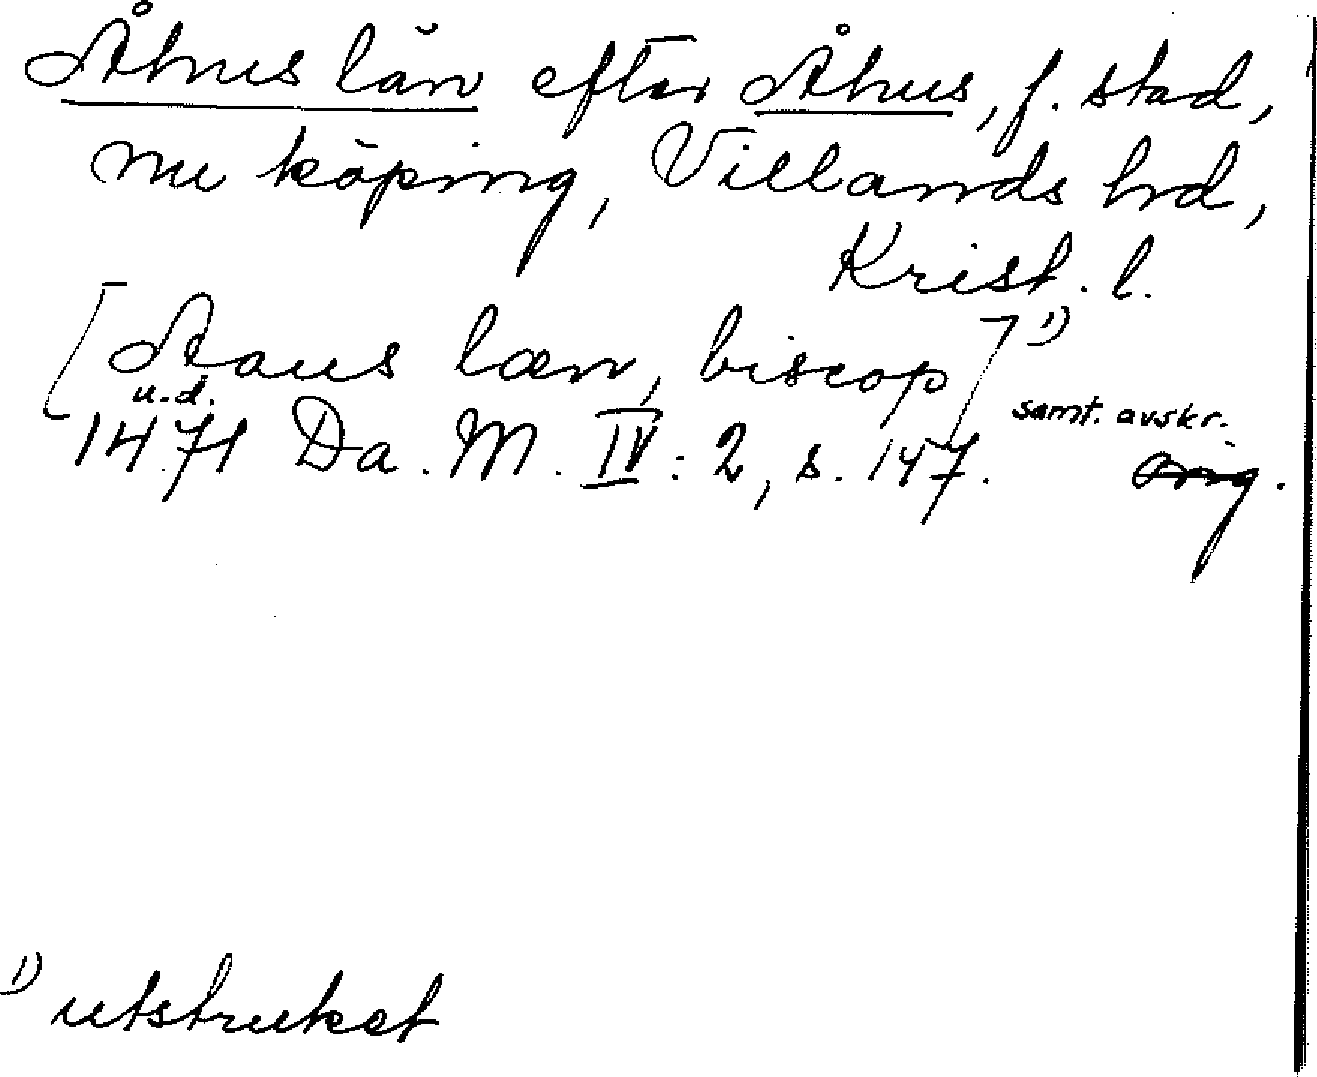 Åhus län efter Åhus, f. stad,
nu köping, Villands hrd,
Krist. l.
[Aaus læn, biscop] 1)
u.d.
samt. avskr.
1471 Da. M. IV: 2, s. 147. orig.
1) utstruket